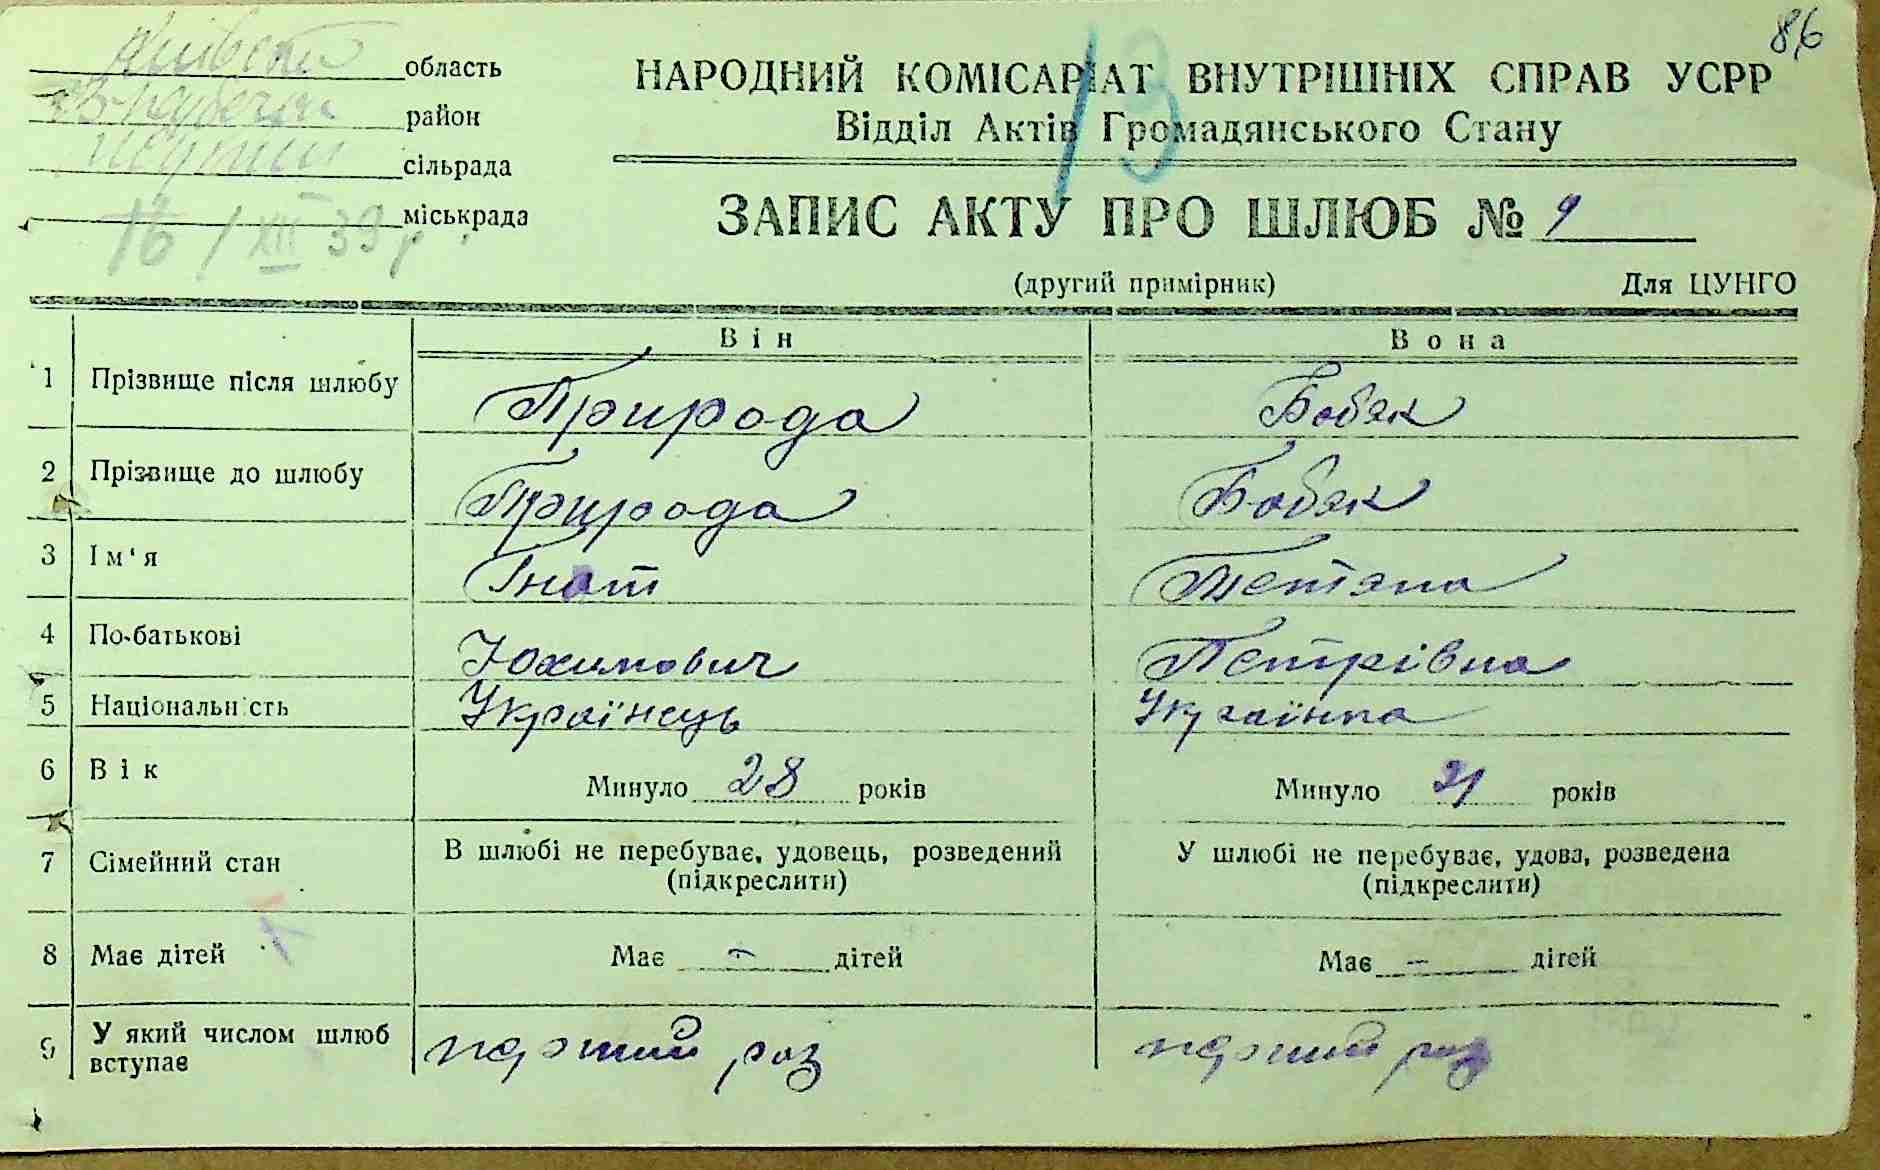 86
Київськ область
район
сільрада
міськрада
16/XII 39 р.
13
НАРОДНИЙ КОМІСАРІАТ ВНУТРІШНІХ СПРАВ УСРР
Відділ Актів Громадянського Стану
ЗАПИС АКТУ ПРО ШЛЮБ № 9
(другий примірник) Для ЦУНГО
Він Вона
1 Прізвище після шлюбу Природа Бобяк
2 Прізвище до шлюбу Природа Бобяк
3 Ім'я Гнат Тетяна
4 По-батькові Юхимович Петрівна
5 Національність Українець Українка
6 Вік Минуло 28 років Минуло 21 років
7 Сімейний стан В шлюбі не перебуває, удовець, розведений (підкреслити) У шлюбі не перебуває, удова, розведена (підкреслити)
8 Має дітей Має – дітей Має – дітей
9 У який числом шлюб вступає перший раз перший раз